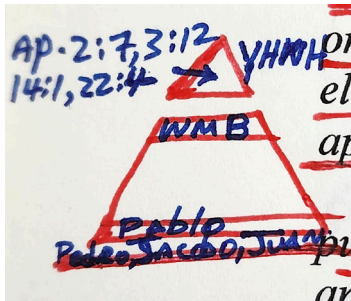 Ap. 2:7, 3:12
14:1, 22:4
YHWH
WMB
Pablo
Pedro, Jacobo, Juan
el
ap